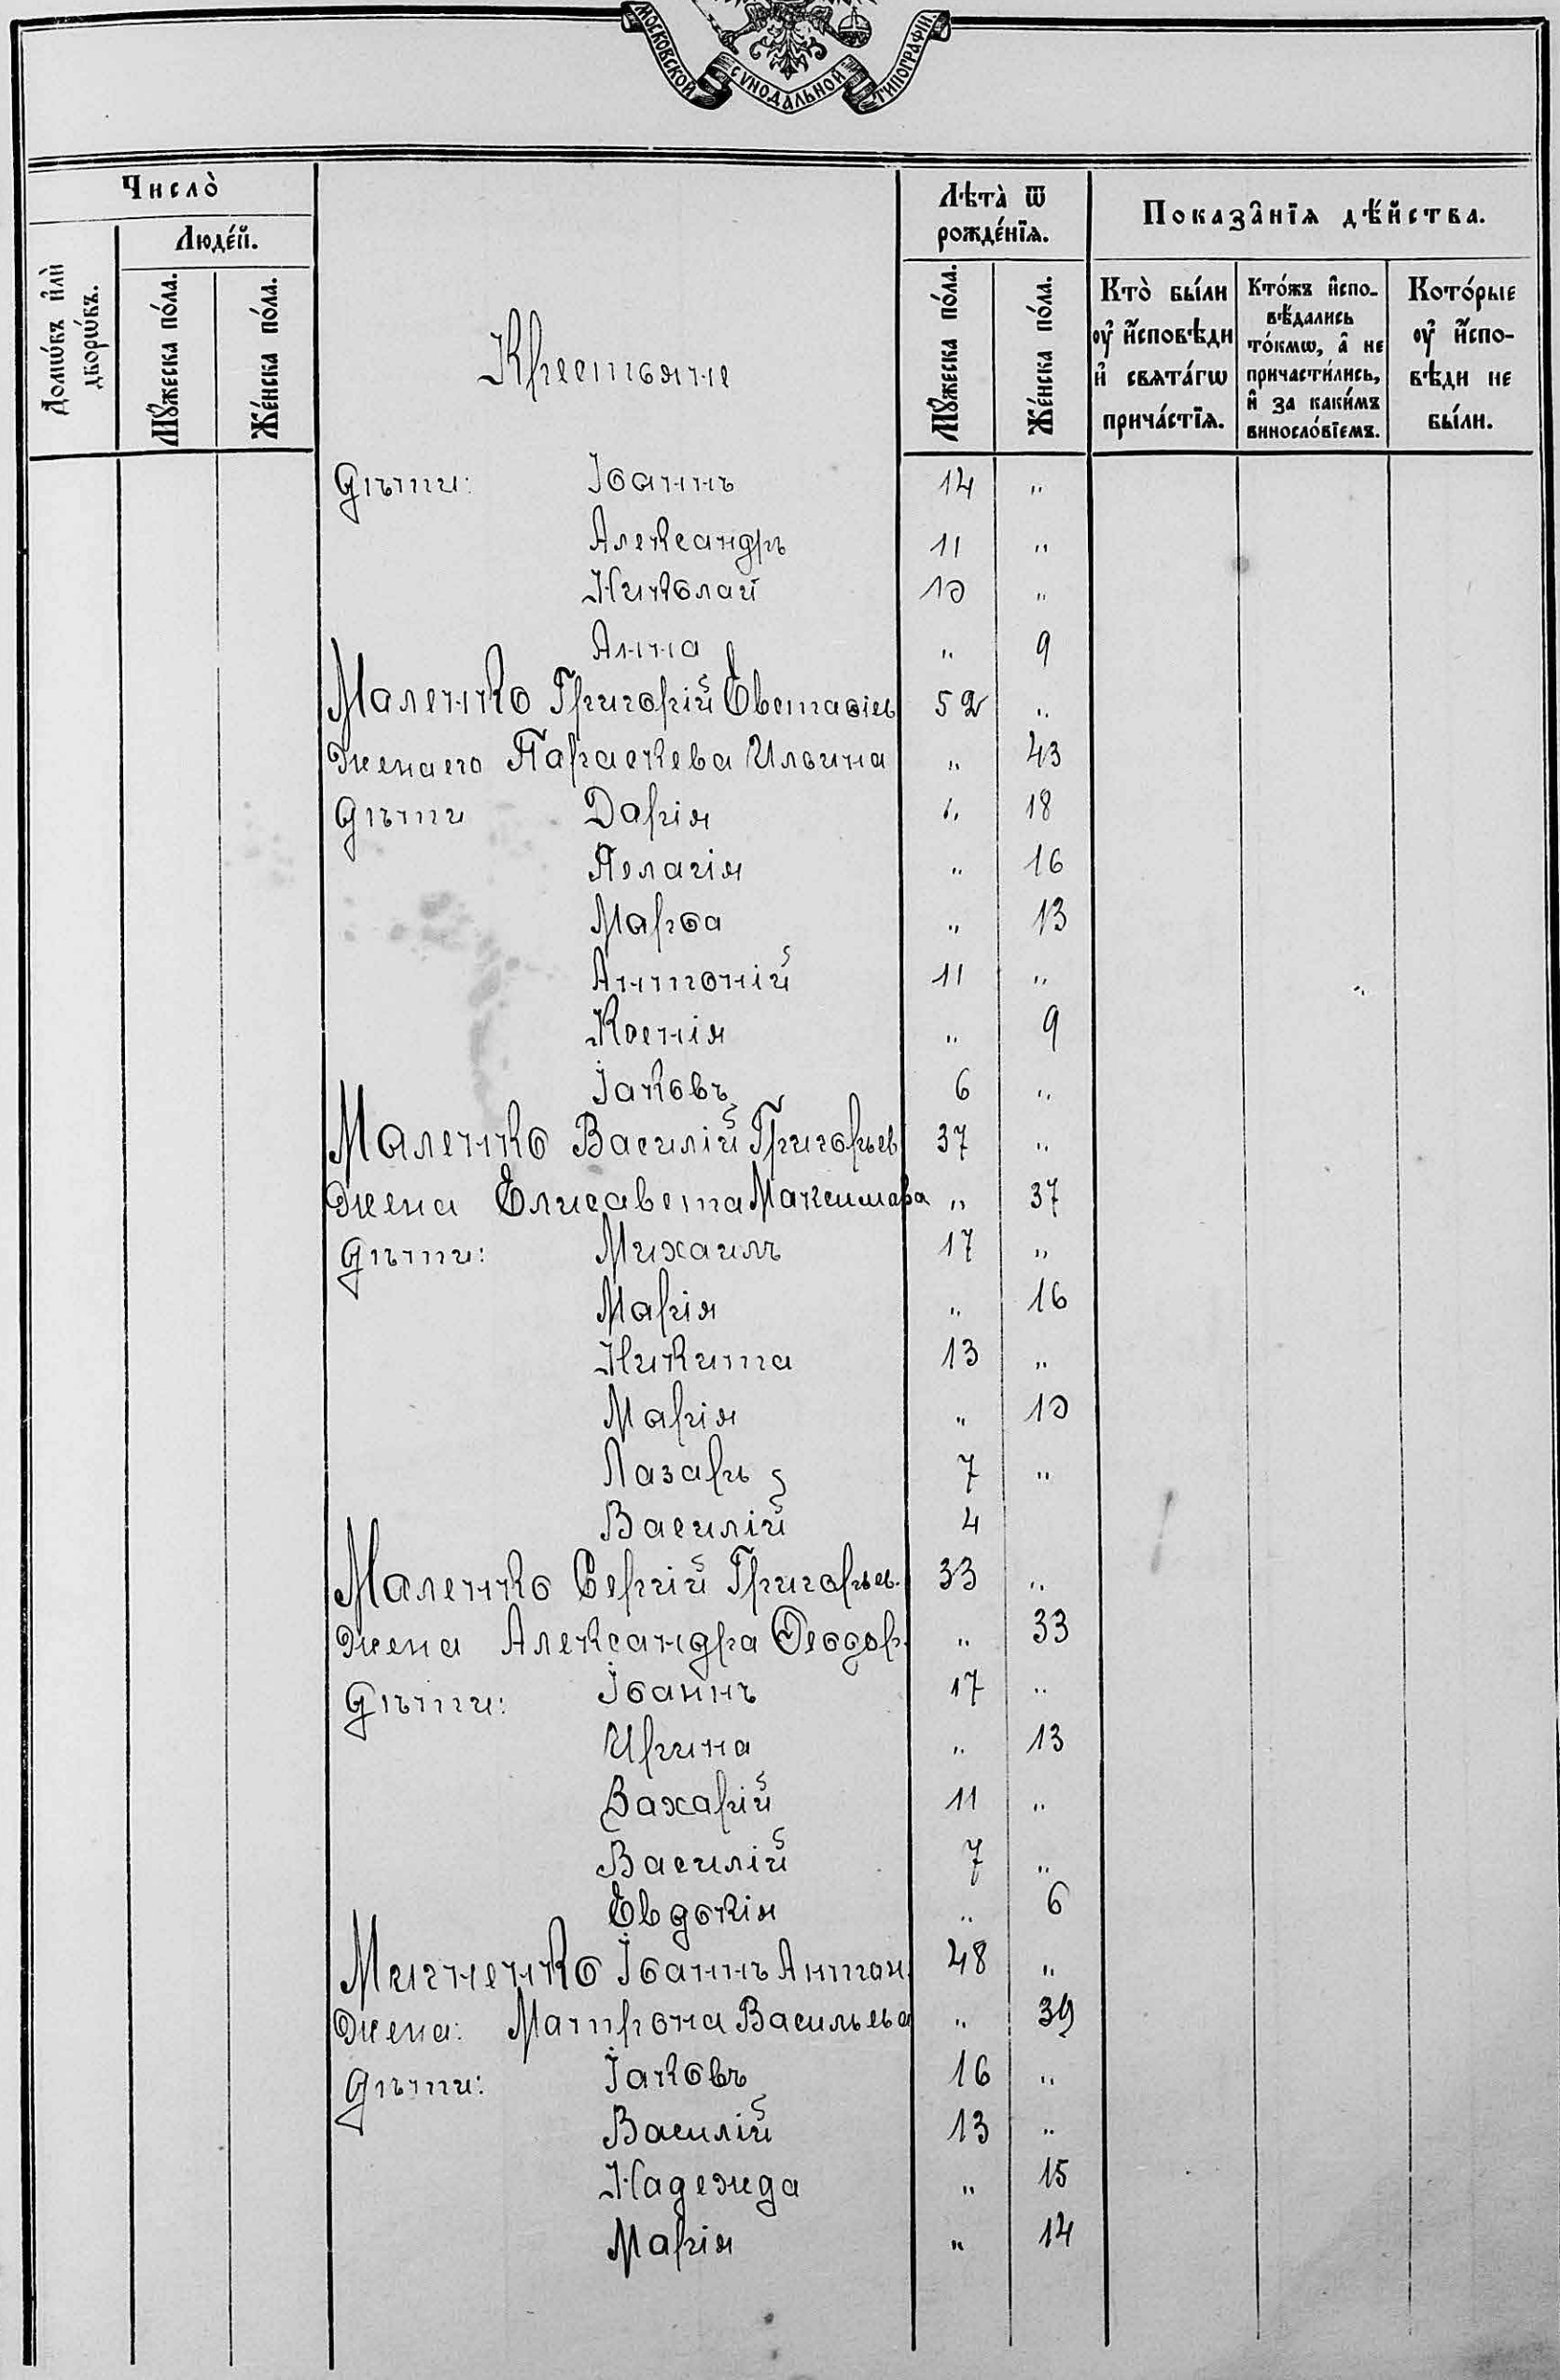 МОСКОВСКОЙ СѴНОДАЛЬНОЙ ТИПОГРАФІИ.
Число̀
Люде́й.
Домѡ́въ и҆лѝ дворѡ́въ.
Мꙋ́жеска по́ла.
Же́нска по́ла.
Крестьяне
Лѣта̀ ѿ рожде́нїѧ.
Мꙋ́жеска по́ла.
Же́нска по́ла.
Показа̑нїѧ дѣ́йства.
Кто̀ бы́ли ᲂу҆ и҆́сповѣди и҆ свѧта́гѡ прича́стїѧ.
Кто́жъ и҆спо-вѣ́дались то́кмѡ, а҆ не причасти́лись, и҆ за каки́мъ виносло́вїемъ.
Кото́рые ᲂу҆ и҆́спо-вѣди не бы́ли.
Дѣти: Іоаннъ 14 "
Александръ 11 "
Николай 10 "
Анна " 9
Маленко Григорій Евстаѳіев 52 "
Жена его Параскева Ильина " 43
Дѣти Дарія " 18
Пелагія " 16
Марѳа " 13
Антоній 11 "
Ксенія " 9
Іаковъ 6 "
Маленко Василій Григорьев 37 "
Жена Елисавета Максимова " 37
Дѣти: Михаилъ 17 "
Марія " 16
Никита 13 "
Марія " 10
Лазарь 7 "
Василій 4
Маленко Сергій Григорьев. 33 "
Жена Александра Ѳеодор. " 33
Дѣти: Іоаннъ 17 "
Ирина " 13
Захарій 11 "
Василій 7 "
Евдокія " 6
Мигненко Іоаннъ Антон. 48 "
Жена: Матрона Васильева " 39
Дѣти: Іаковъ 16 "
Василій 13 "
Надежда " 15
Марія " 14